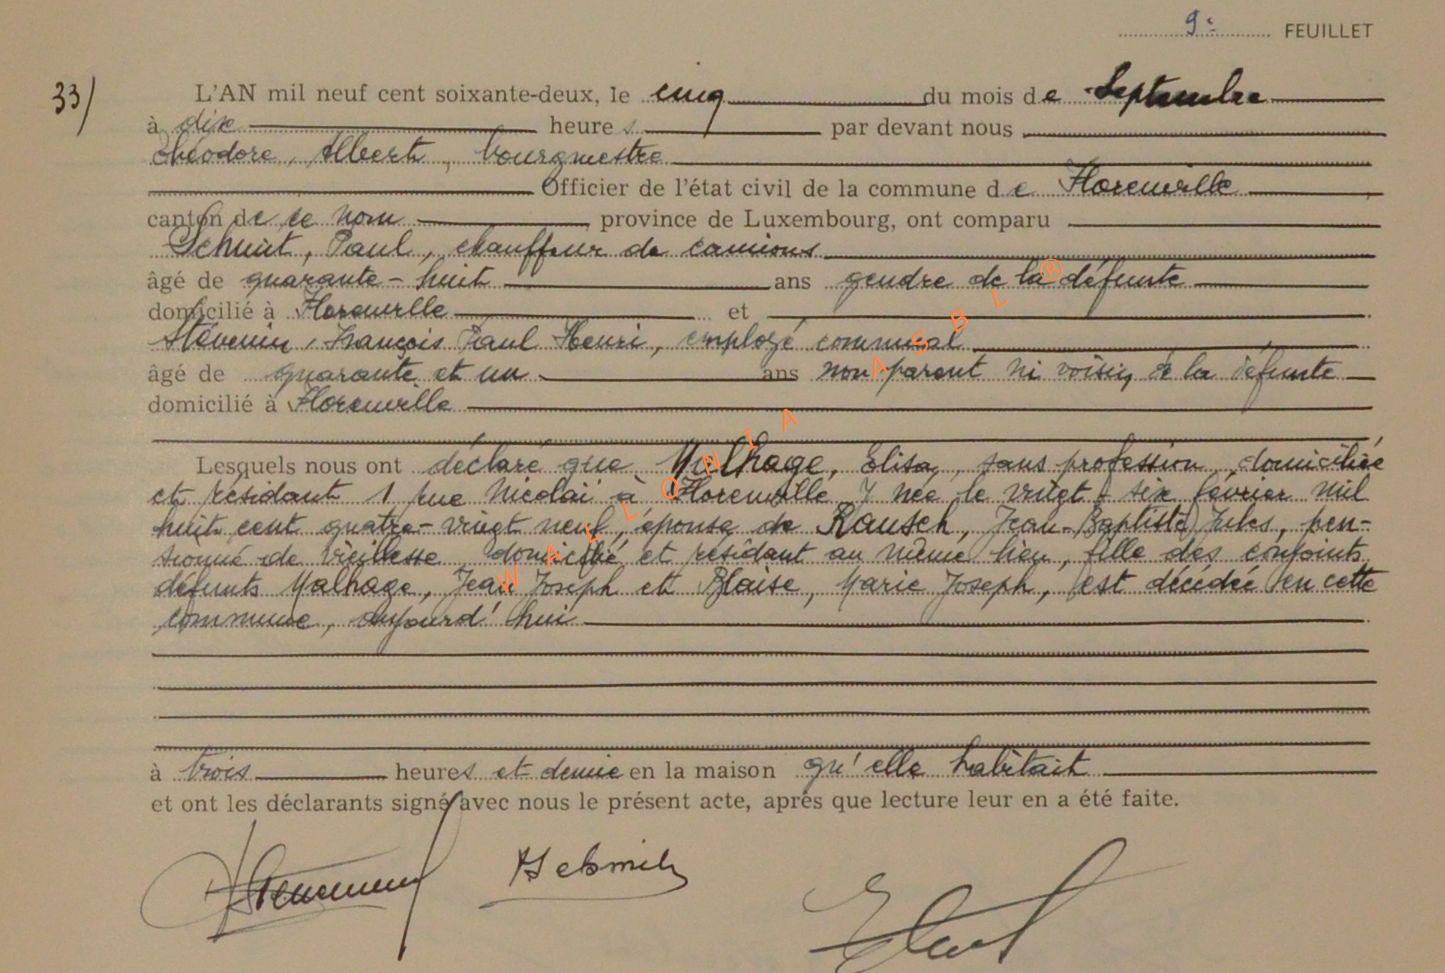 9e FEUILLET
33/
L'AN mil neuf cent soixante-deux, le cinq du mois de Septembre
à dix heures par devant nous
Théodore, Albert, bourgmestre
Officier de l'état civil de la commune de Florenville
canton de ce nom province de Luxembourg, ont comparu
Paul, chauffeur de camions
âgé de quarante-huit ans gendre de la défunte
domicilié à Florenville et
Stévenin, François Paul Henri, employé communal
âgé de quarante et un ans non parent ni voisin de la défunte
domicilié à Florenville
Lesquels nous ont déclaré que Malhage, Elisa, sans profession, domiciliée
et résidant 1 rue Nicolaï à Florenville, y née le vingt-six février mil
huit cent quatre-vingt neuf, épouse de Rausch, Jean-Baptiste Jules, pen-
sionné de vieillesse domicilié et résidant au même lieu, fille des conjoints
défunts Malhage, Jean Joseph et Blaise, Marie Joseph, est décédée en cette
commune, aujourd'hui
à trois heures et demie en la maison qu'elle habitait
et ont les déclarants signé avec nous le présent acte, après que lecture leur en a été faite.
WALLONIA ASBL ®